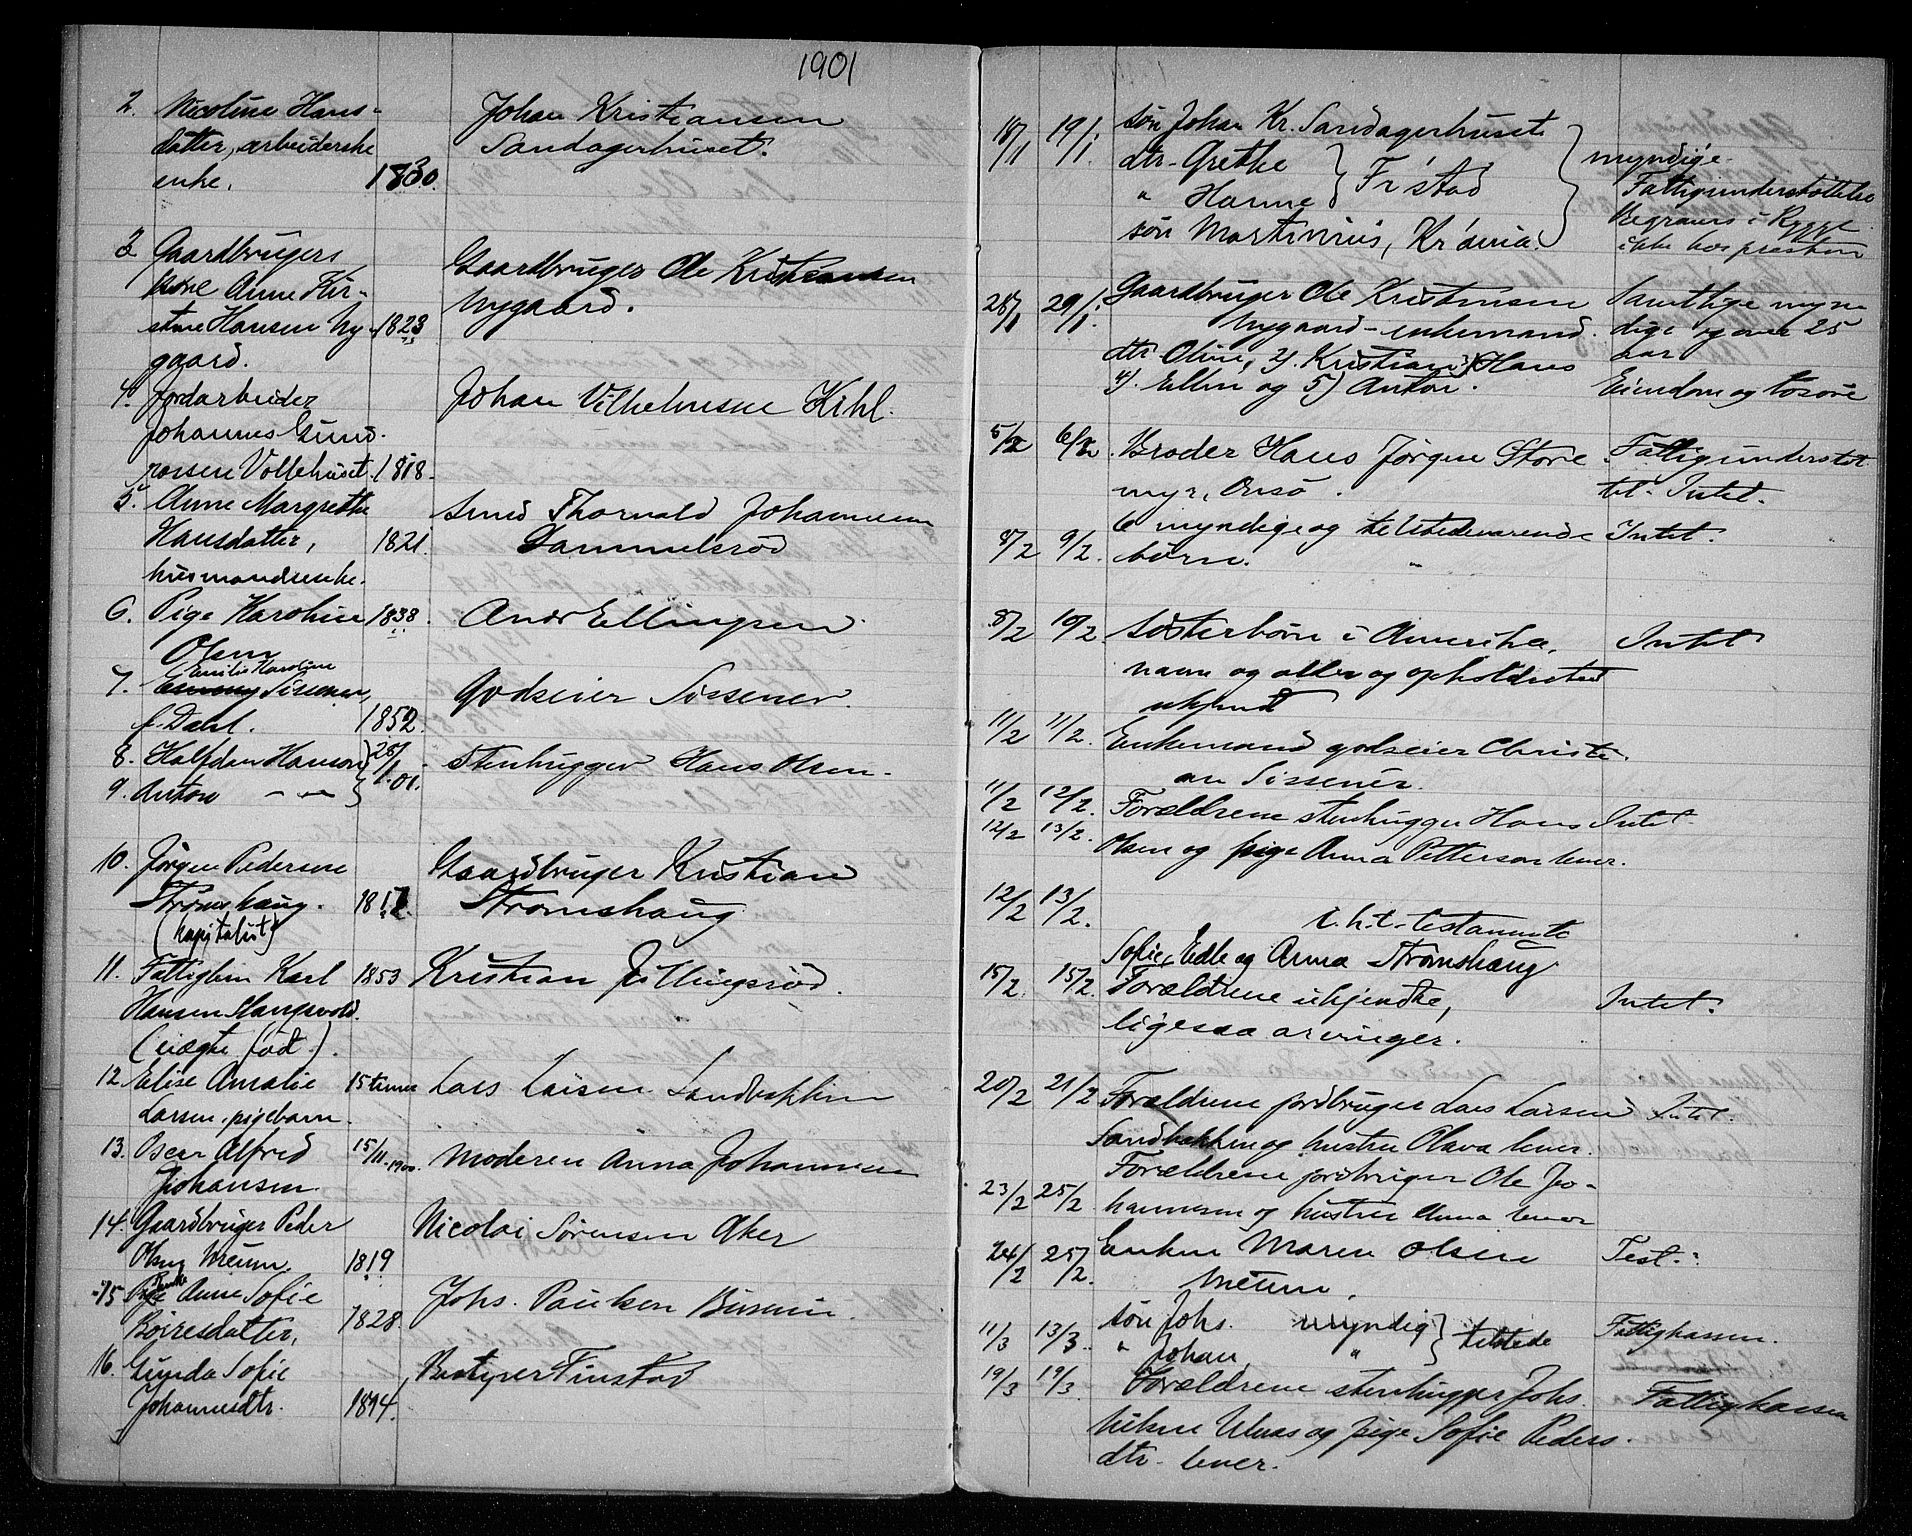 1901
2. Nicoline Hans-
datter, arbeiderske
enke. 1830.
Johan Kristiansen
Sandagerhuset.
3. Gaardbrugers
kone Anne Kir-
stine Hansen Ny- 1823
gaard.
Gaardbruger Ole Kristiansen
Nygaard.
4. Jordarbeider
Johannes Gund-
Vollehuset. 1818.
Johan Vilhelmsen Kihl.
5. Anne Margrethe
Hansdatter, 1821.
husmandsenke.
Thorvald Johannesen
Gammelsrød
6. Pige Karoline 1838.
Olsen
Andr Ellingsen
7. Emilie Karoline
Sissener,
f. Dahl. 1852.
Godseier Sissener.
8. Halfdan Hansen } 28/1.01.
9. Anton — " — }
Stenhugger Hans Olsen.
10. Jørgen Pedersen
Strømshaug. 1812
(kapitalist)
Gaardbruger Kristian
Strømshaug
11. Fattiglem Karl 1853
Hansen
(uægte født).
Kristian Jillingsrød.
12. Elise Amalie 15 timer
Larsen, pigebarn.
Lars Larsen Sandbækken
13. Oscar Alfred 15/11.1900.
Johansen.
Moderen Anna Johannesen
14. Gaardbruger Peder
Olsen Meum. 1819
Nicolai Sørensen Aker
15 Pige Anne Sofie
Børresdatter, 1828.
Johs. Paulsen
16. Gunda Sofie
Johannesdtr. 1894.
Bestyrer Finstad
18/1 19/1. søn Johan Kr. Sandagerhuset
dtr. Grethe } Fr'stad
" Hanne }
søn Martinius, Kr'ania.
myndige.
Fattigunderstøttelse
Begraves i Rygge
ikke hos presten
28/1 29/1. Gaardbruger Ole Kristiansen
Nygaard - enkemand.
dtr Oline, 2). Kristian 3) Hans
4). Ellen og 5) Anton.
Samtlige myn
dige og over 25
aar
Eiendom og løsøre
5/2 6/2. Broder Hans Jørgen Store
myr, Onsø.
Fattigunderstøt
tet. Intet.
8/2 9/2. 6 myndige og tilstedeværende
børn.
Intet.
8/2 10/2. Søsterbørn i Amerika,
navn og alder og opholdssted
ukjendt
Intet
11/2 11/2. Enkemand godseier Christi
an Sissener.
11/2 12/2. Forældrene stenhugger Hans
12/2 13/2. Olsen og pige Anna Petterson lever.
Intet
12/2 13/2. i.h.t. testamente
Sofie, Edle og Anna Strømshaug
15/2. 15/2. Forældrene ukjendte,
ligesaa arvinger.
Intet.
20/2 21/2 Forældrene jordbruger Lars Larsen
Sandbækken og hustru Olava lever.
Intet.
23/2 25/2 Forældrene jordbruger Ole Jo-
hannesen og hustru Anna lever
24/2 25/2. Enken Maren Olsen
Meum.
Test.
11/3 13/3. søn Johs. myndig } tilstede
" Johan, " }
Fattigkassen.
19/3 19/3. Forældrene stenhugger Johs.
og pige Sofie Peders
dtr. lever.
Fattigkassen